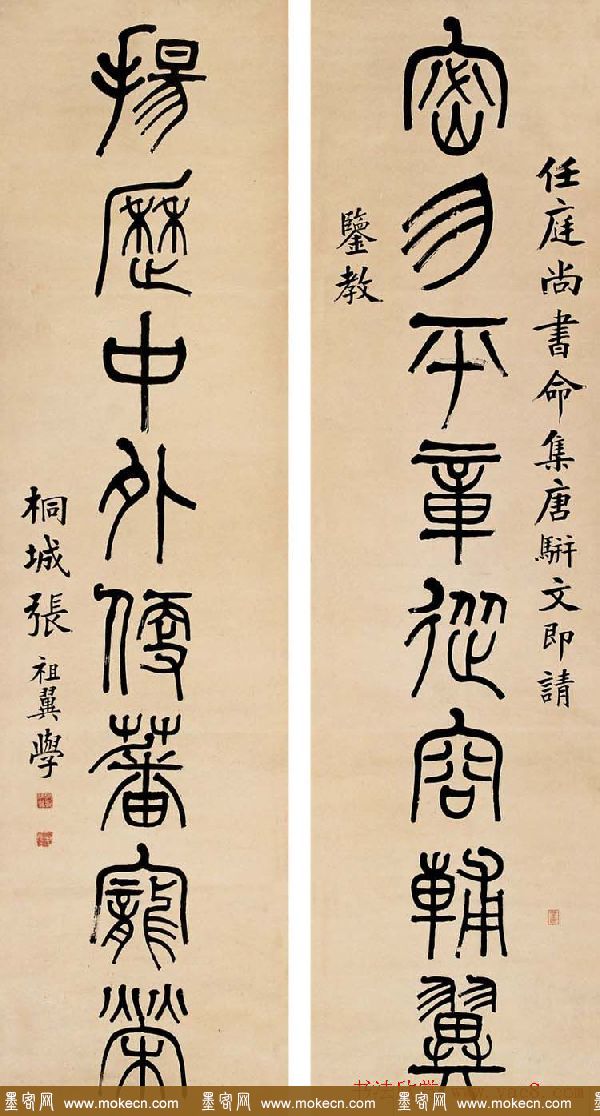 任庭尚書命集唐駢文即請
密勿平章從容輔翼
鑒教
揚歷中外優蕃寵榮
桐城張祖翼學
墨客网 www.mokecn.com 墨客网 www.mokecn.com 墨客网 www.mokecn.com